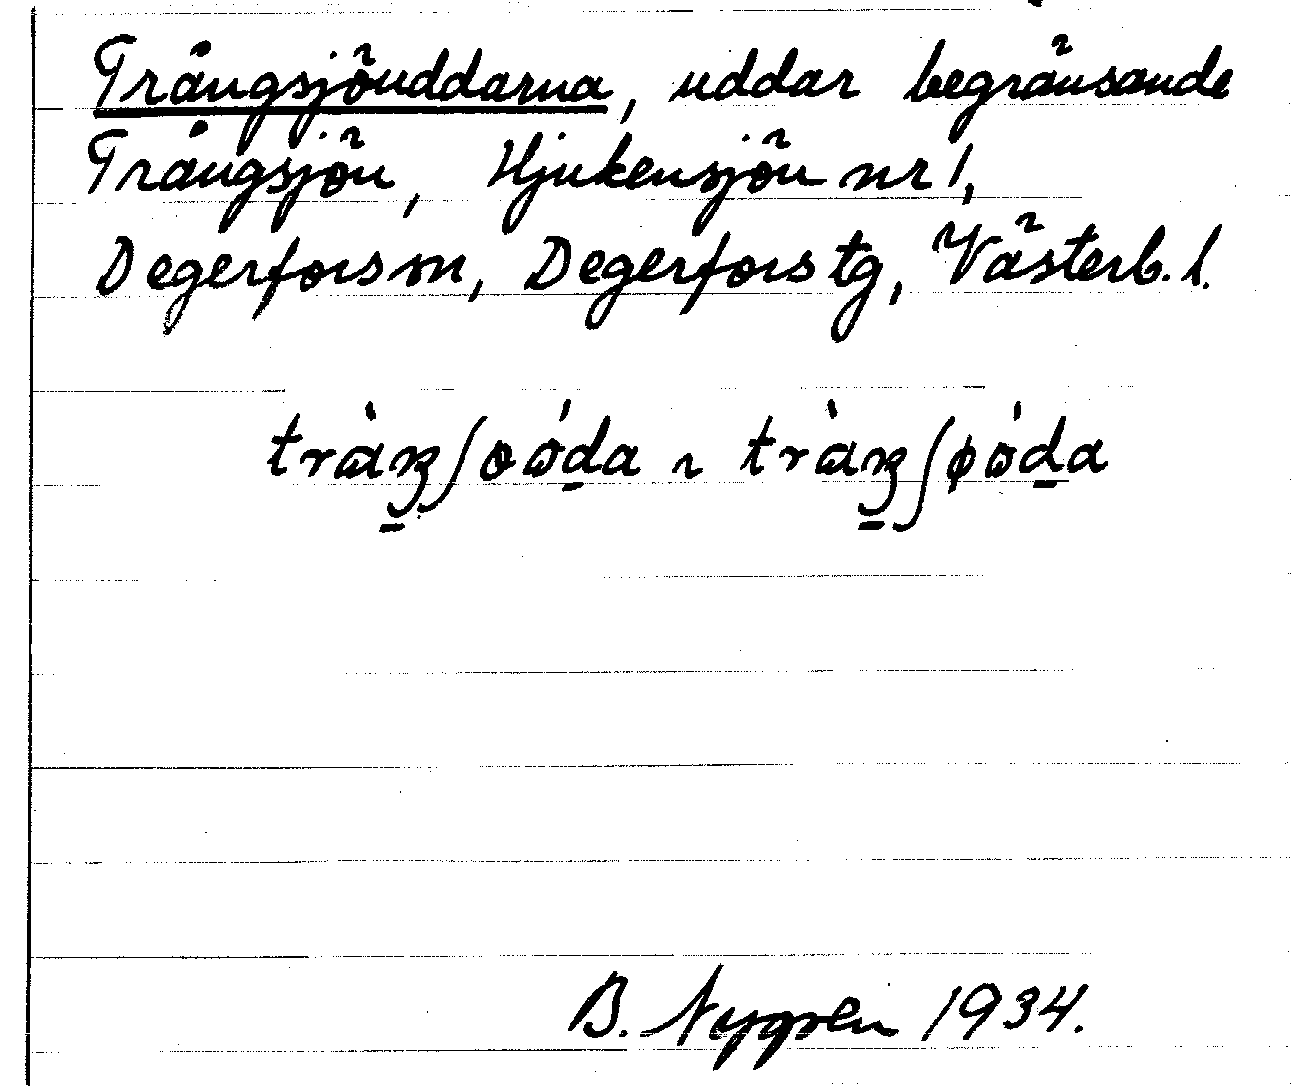 Trångsjöuddarna, uddar begränsande
Trångsjön, Hjukensjön nr 1,
Degerfors sn, Degerfors tg, Västerb. l.
B. Nygren 1934.